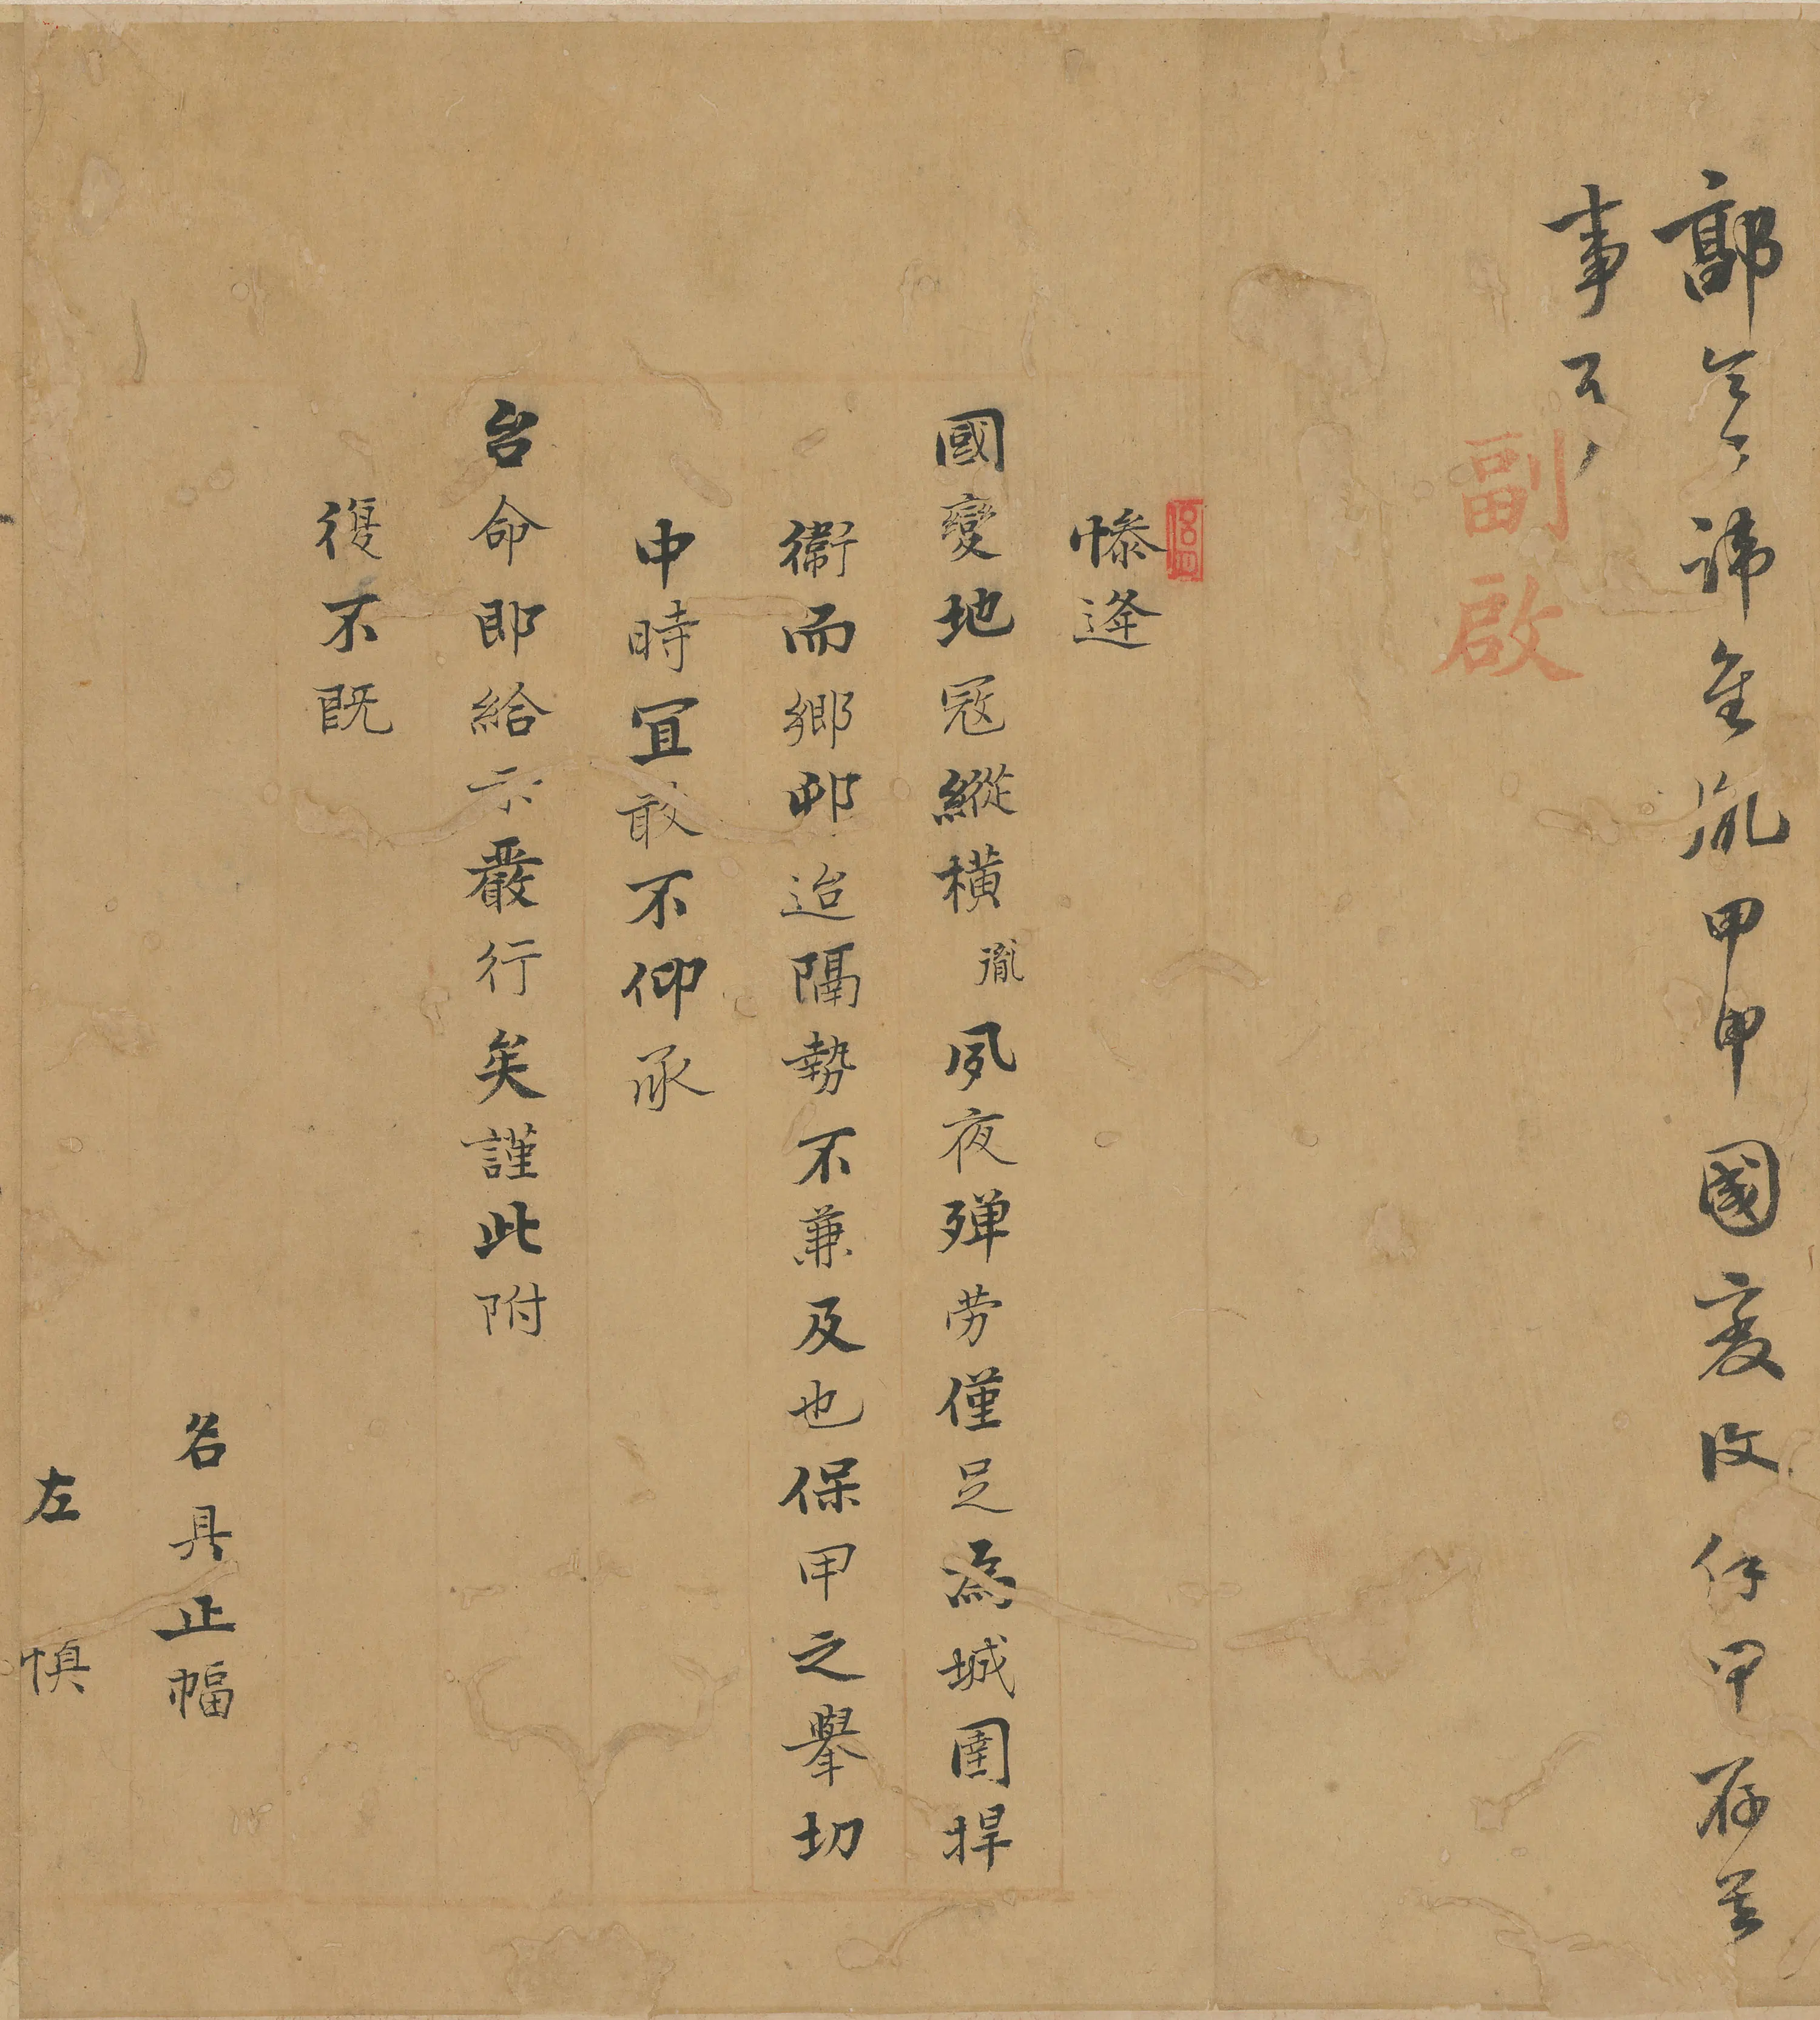 鄗 諱 胤甲申國 甲存
事
副啟
慘逢
國變地寇縱橫胤夙夜殫劳僅足為城圉捍
衞而鄉邨迢隔勢不兼及也保甲之舉切
中時宜敢不仰承
台命即給示嚴行矣謹此附
復不既
名具正幅
左慎